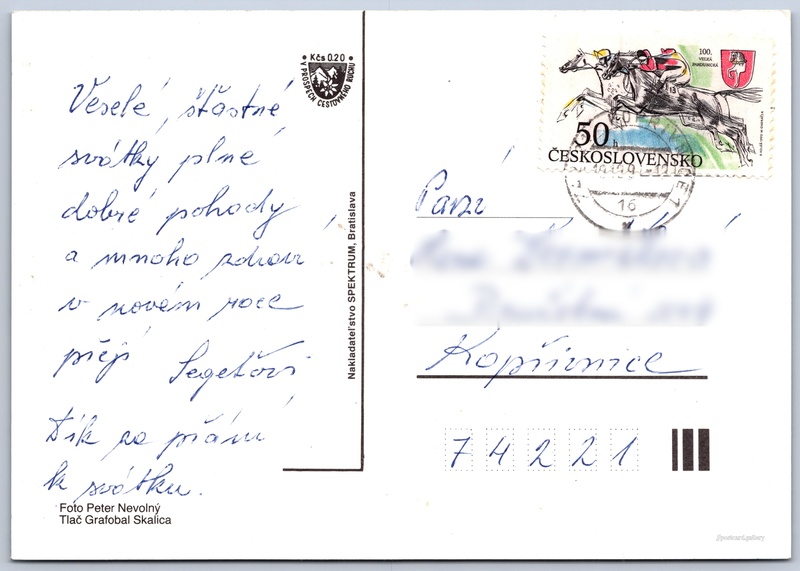 Veselé, šťastné
svátky plné
dobré pohody
a mnoho zdraví
v novém roce
přejí Segeťovi
Dík za přání
k svátku.
Foto Peter Nevolný
Tlač Grafobal Skalica
Kčs 0.20
V PROSPECH CESTOVNÉHO RUCHU
Nakladateľstvo SPEKTRUM, Bratislava
100.
VELKÁ
PARDUBICKÁ
13
50 h
ČESKOSLOVENSKO
16
Paní
Kopřivnice
74221
postcard.gallery